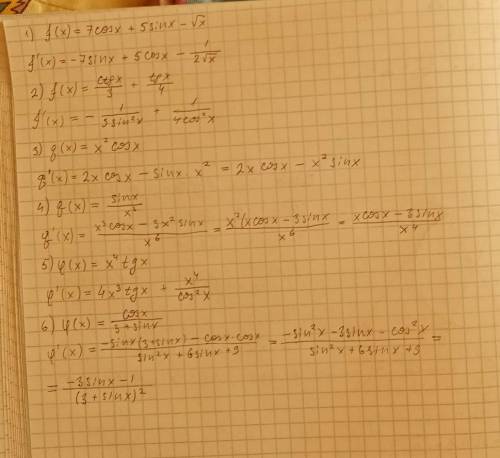 1) f(x) = 7cosx + 5sinx − √x
f'(x) = −7sinx + 5cosx − 1/(2√x)
2) f(x) = ctgx/3 + tgx/4
f'(x) = − 1/(3sin²x) + 1/(4cos²x)
3) φ(x) = x² cosx
φ'(x) = 2x cosx − sinx · x² = 2x cosx − x² sinx
4) φ(x) = sinx/x³
φ'(x) = (x³cosx − 3x² sinx)/x⁶ = (x²(xcosx − 3sinx)/x⁶ = (xcosx − 3sinx)/x⁴
5) φ(x) = x⁴ tgx
φ'(x) = 4x³tgx + x⁴/cos²x
6) φ(x) = cosx/(3+sinx)
φ'(x) = (−sinx(3+sinx) − cosx·cosx)/(sin²x + 6sinx + 9) = (−sin²x − 3sinx − cos²x)/(sin²x + 6sinx + 9) =
= (−3sinx − 1)/(3 + sinx)²